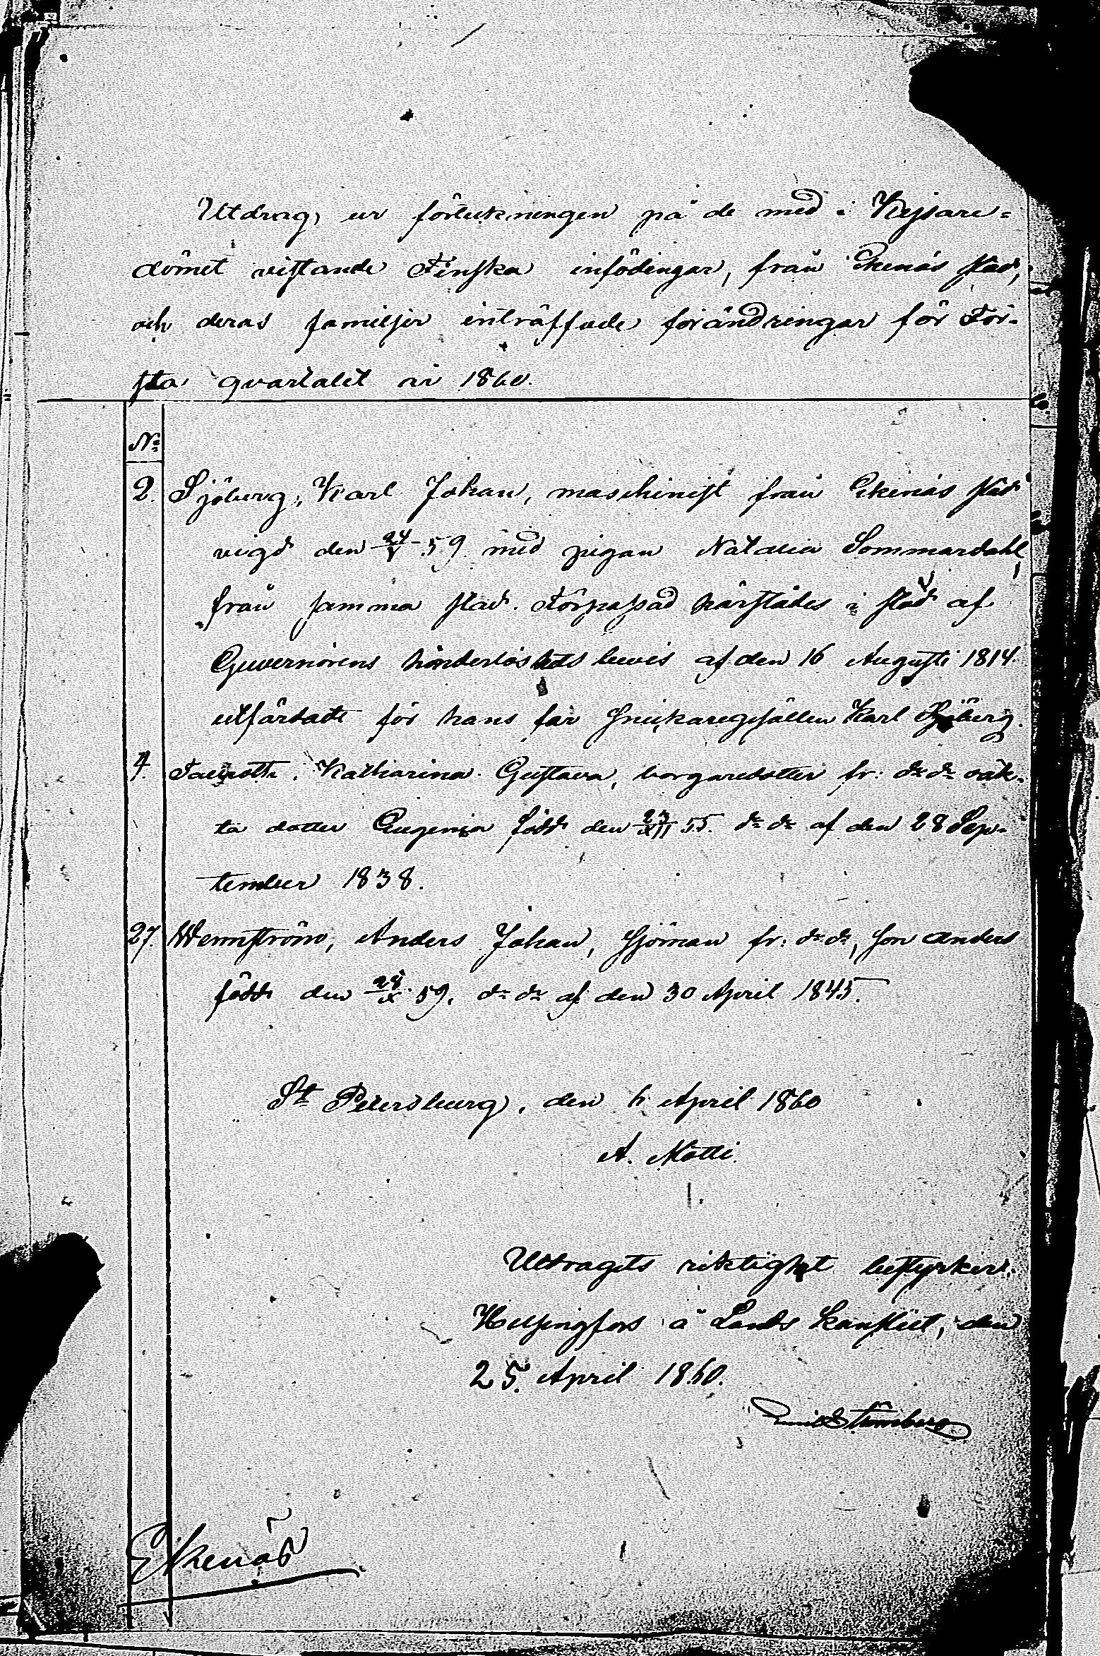 Utdrag, ur förteckningen på de med i Kejsare=
dömet vistande Finska infödingar, från Ekenäs stad,
och deras familjer inträffade förändringar för För-
sta qvartalet år 1860.
No
2. Sjöberg, Karl Johan, maschinist från Ekenäs stad
vigd den 24/V 59 med pigan Natalia Sommardahl
från samma stad. Förpassad härstädes i stöd af
Guvernörens hinderlöshets bevis af den 16 Augusti 1814
utfärdadt för hans far snickaregesällen Karl Sjöberg.
4. Katharina Gustava, borgaredotter fr: d:o d:o oäk-
ta dotter Eugenia född den 23/XII 55. d:o d:o af den 28 Sep-
tember 1838.
27. Wennström, Anders Johan, sjöman fr: d:o d:o, son Anders
född den 28/X 59. d:o d:o af den 30 April 1845.
St Petersburg, den 6 April 1860
A. Mötti.
Utdragets riktighet bestyrker.
Helsingfors å Lands kansliet, den
25. April 1860.
Emil Strömberg
Ekenäs